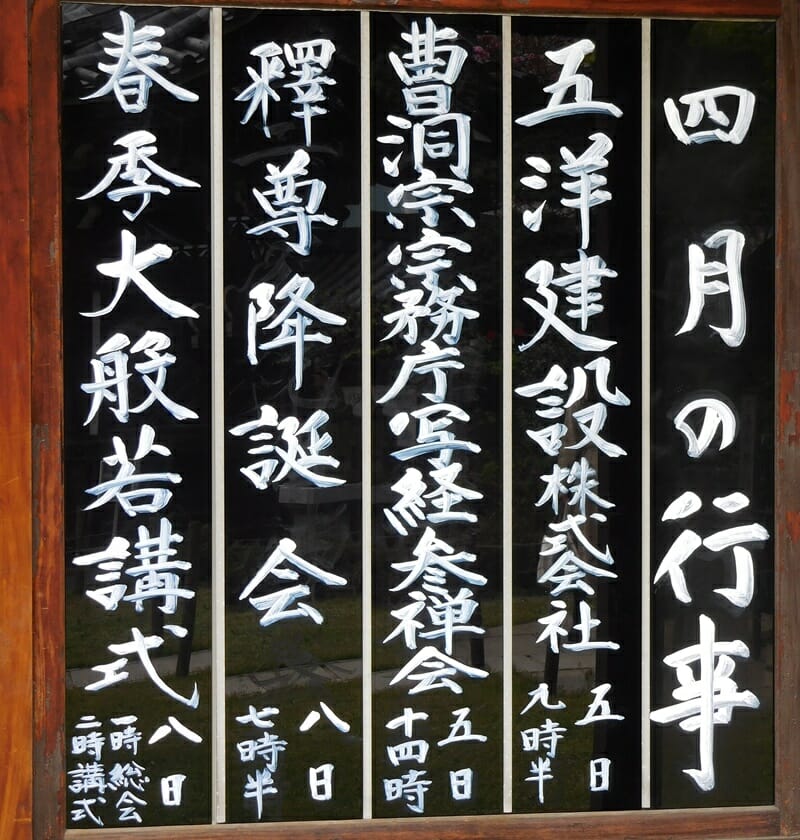 四月の行事
五洋建設株式会社
五日
九時半
曹洞宗宗務庁写経参禅会
五日
十四時
釋尊降誕会
八日
七時半
春季大般若講式
八日
一時総会
二時講式